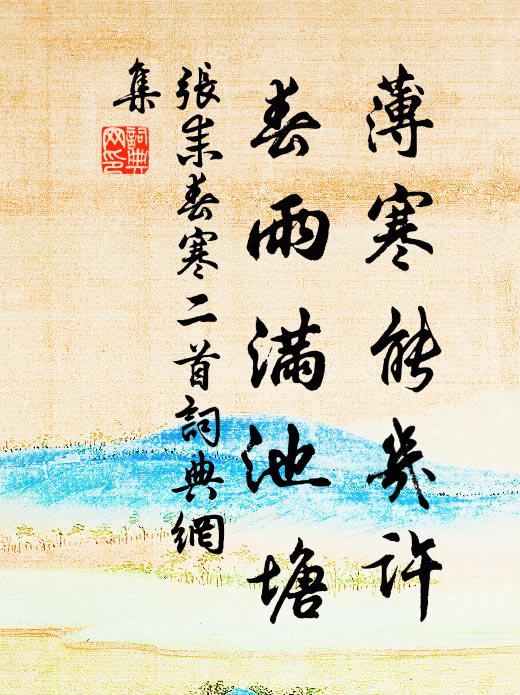 薄寒能幾許
春雨滿池塘
張耒春寒二首詞典網
集
詞典
网印